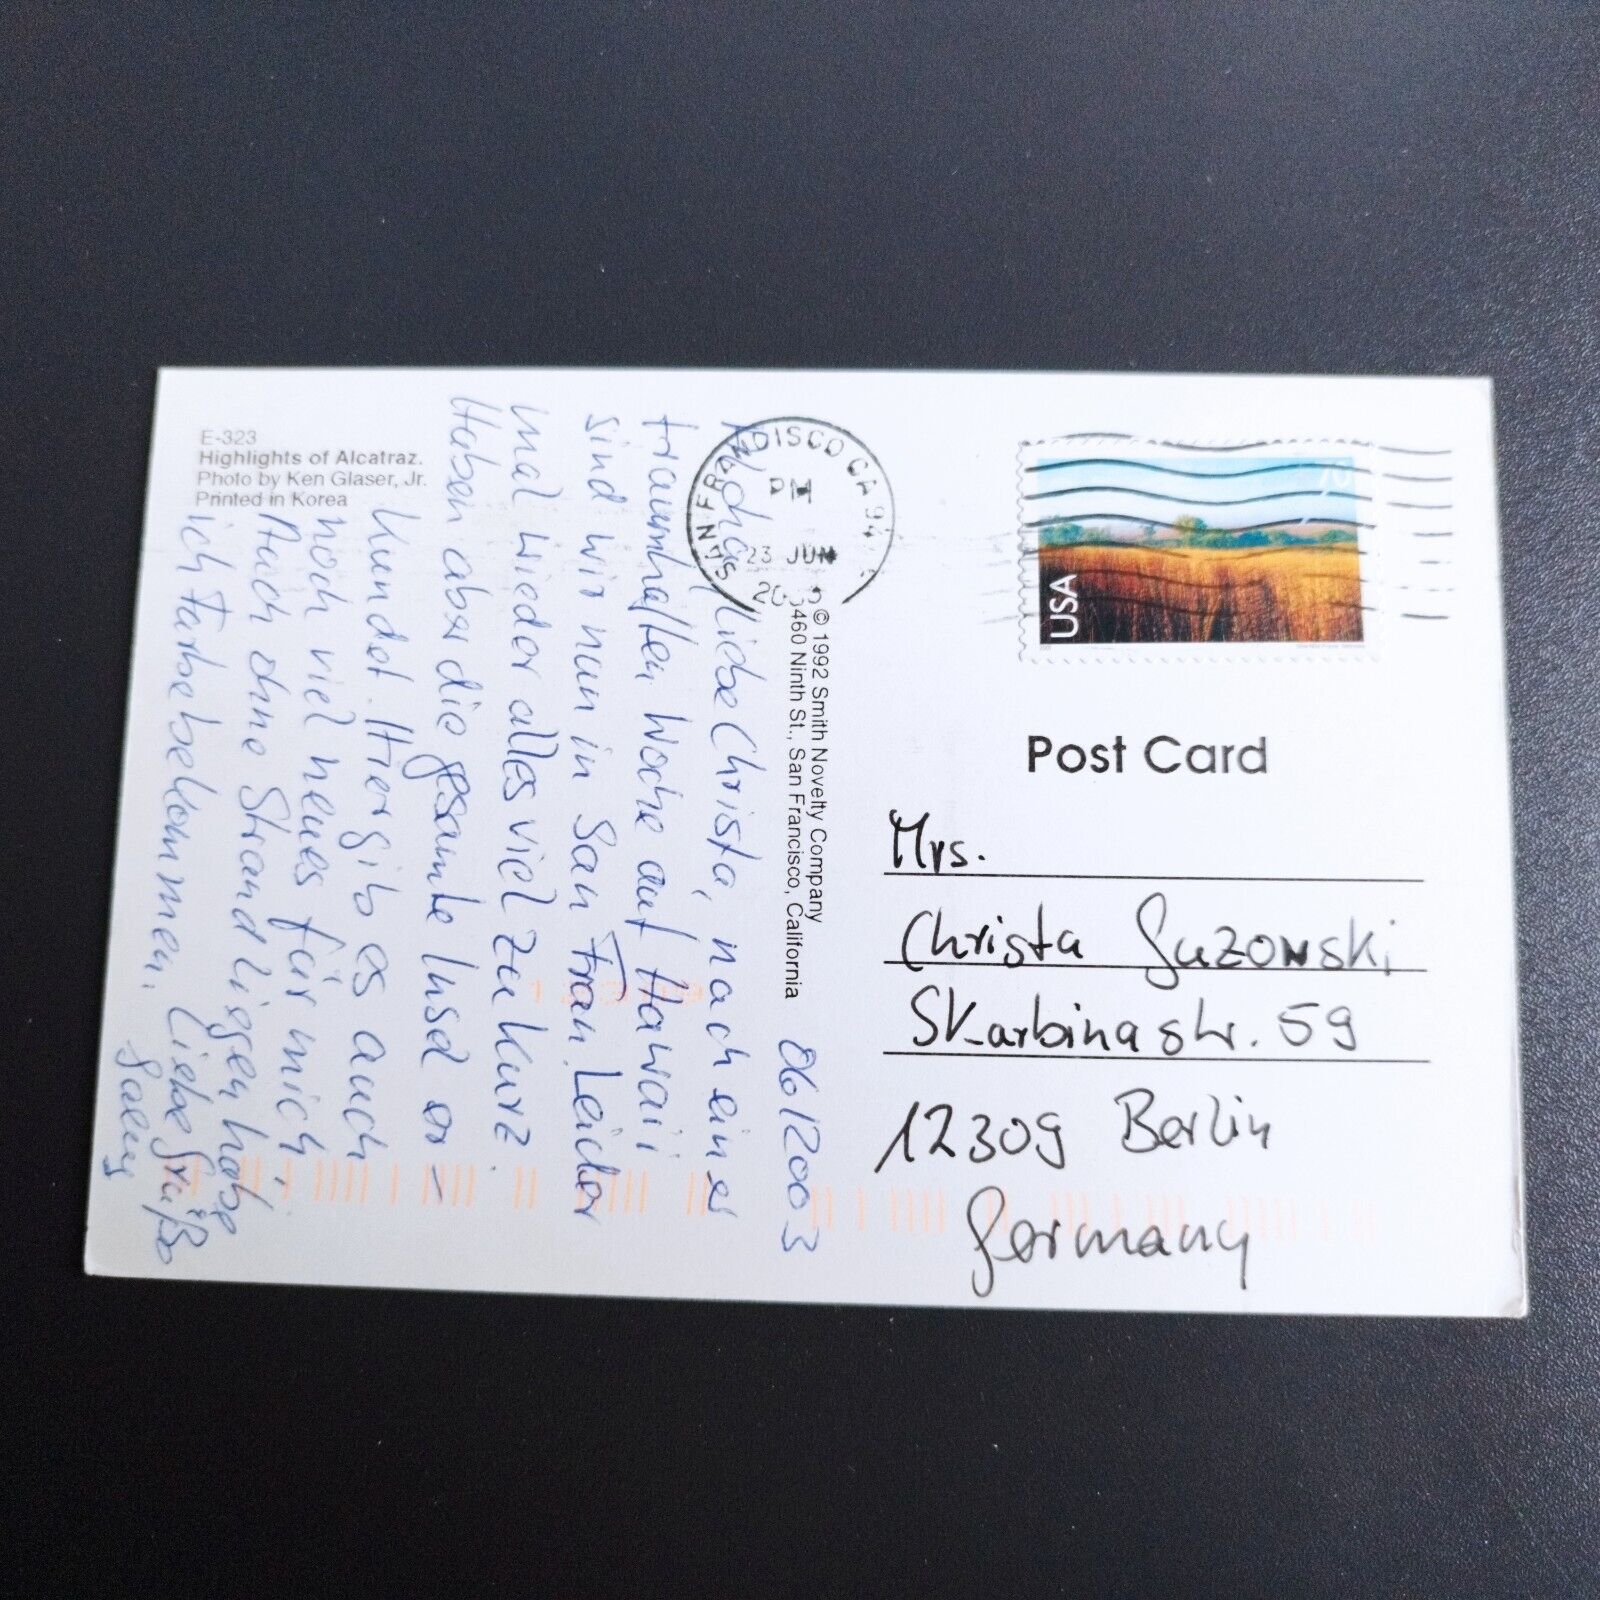 E-323
Highlights of Alcatraz.
Photo by Ken Glaser, Jr.
Printed in Korea
06/2003
liebe Christa, nach einer
traumhaften Woche auf Hawaii
sind wir nun in San Fran. Leider
mal wieder alles viel zu kurz.
Haben aber die gesamte Insel er=
kundet. Hier gib es auch
noch viel neues für mich,
Auch ohne Strand liegen habe
ich Farbe bekommen. Liebe Grüße
© 1992 Smith Novelty Company
460 Ninth St., San Francisco, California
SAN FRANCISCO CA 94
PM
23 JUN
USA
Post Card
Mrs.
Christa
Skarbinastr. 59
12309 Berlin
Germany